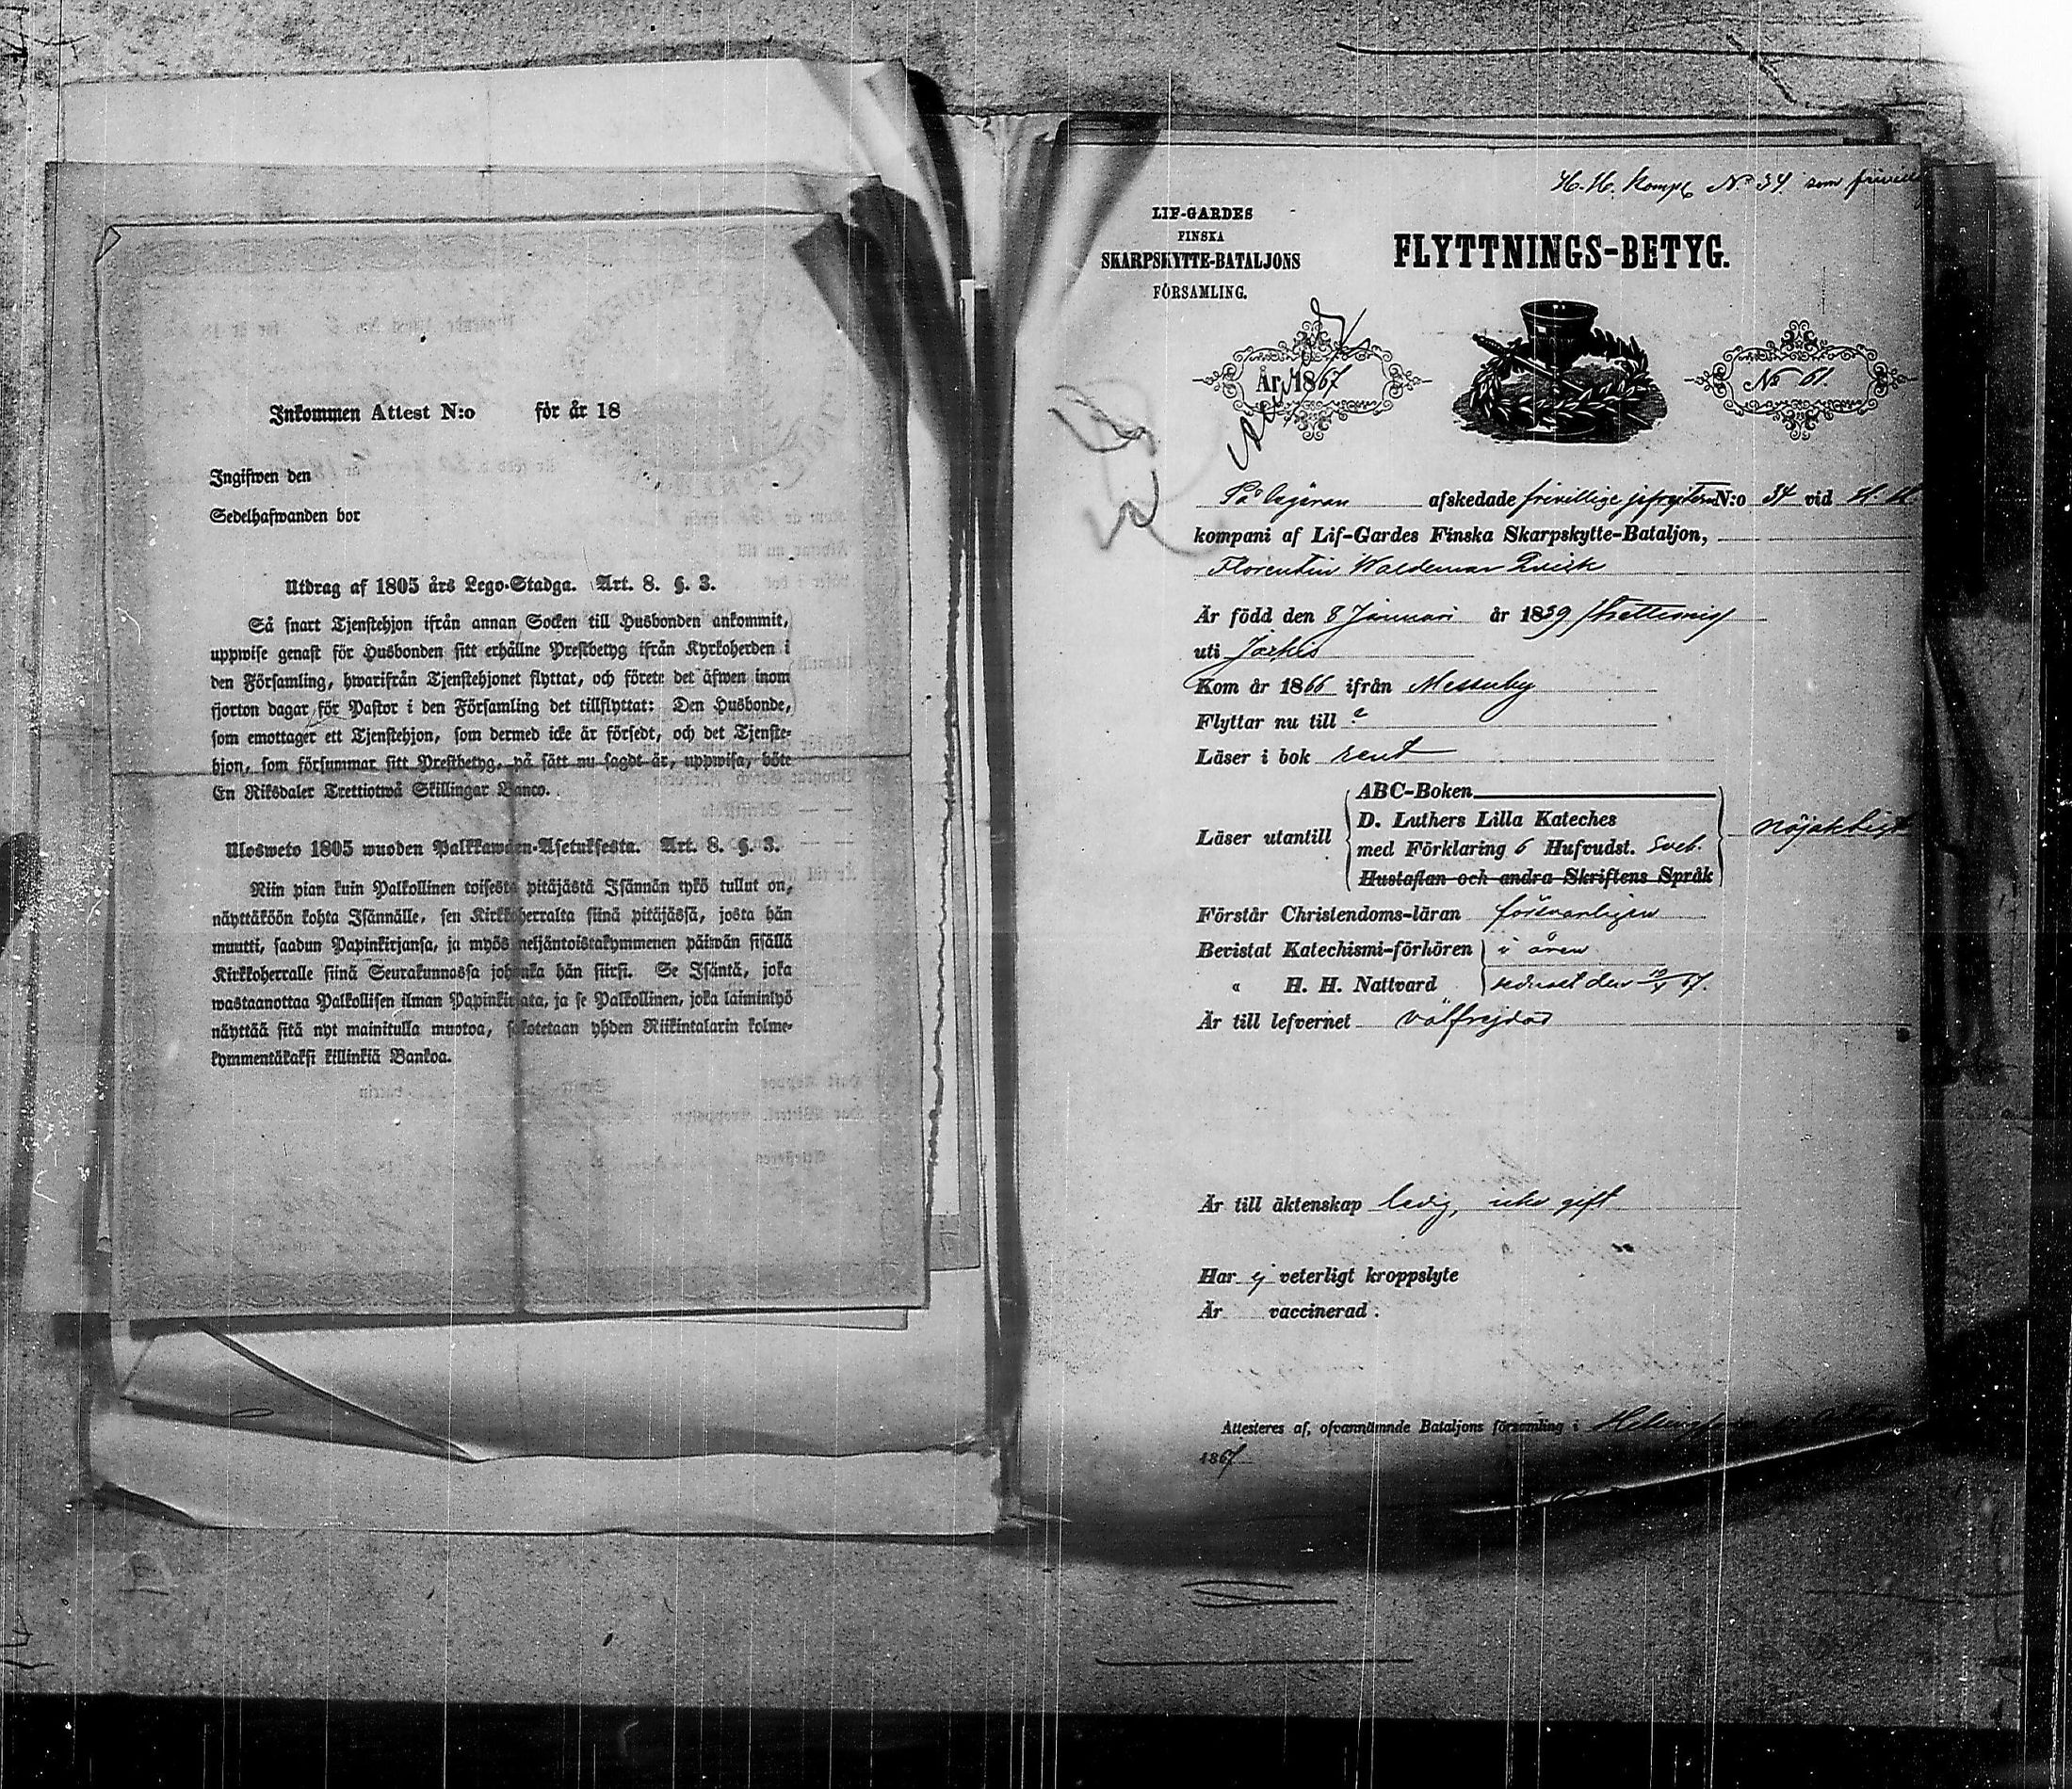 Inkommen Attest N:o för år 18
Ingifwen den
Sedelhafwanden bor
Utdrag af 1805 års Lego-Stadga. Art. 8. §. 3.
Så snart Tjenstehjon ifrån annan Socken till Husbonden ankommit,
uppwise genast för Husbonden sitt erhållne Prestbetyg ifrån Kyrkoherden i
den Församling, hwarifrån Tjenstehjonet flyttat, och förete det äfwen inom
fjorton dagar för Pastor i den Församling det tillflyttat: Den Husbonde,
som emottager ett Tjenstehjon, som dermed icke är försedt, och det Tjenste-
hjon, som försummar sitt Prestbetyg, på sätt nu sagdt är, uppwisa, böte
En Riksdaler Trettiotwå Skillingar Banco.
Ulosweto 1805 wuoden Palkkawäen-Asetuksesta. Art. 8. §. 3.
Niin pian kuin Palkollinen toisesta pitäjästä Isännän tykö tullut on,
näyttäköön kohta Isännälle, sen Kirkkoherralta siinä pitäjässä, josta hän
muutti, saadun Papinkirjansa, ja myös neljäntoistakymmenen päiwän sisällä
Kirkkoherralle siinä Seurakunnassa johonka hän siirsi. Se Isäntä, joka
wastaanottaa Palkollisen ilman Papinkirjata, ja se Palkollinen, joka laiminlyö
näyttää sitä nyt mainitulla muotoa, sakotetaan yhden Riikintalarin kolme-
kymmentäkaksi killinkiä Bankoa.
H. H. Komp No 34 som
LIF-GARDES
FINSKA
SKARPSKYTTE-BATALJONS
FÖRSAMLING.
FLYTTNINGS-BETYG.
År 1867
No 61.
På begäran afskedade frivillige N:o 34 vid H. H
kompani af Lif-Gardes Finska Skarpskytte-Bataljon,
Florentin Waldemar Qvick
Är född den 8 Januari år 1839
uti
Kom år 1866 ifrån Messuby
Flyttar nu till
Läser i bok rent
ABC-Boken
D. Luthers Lilla Kateches
Läser utantill
nöjaktigt
med Förklaring 6 Hufvudst. Sveb.
Hustaflan och andra Skriftens Språk
Förstår Christendoms-läran försvarligen
Bevistat Katechismi-förhören i åren
« H. H. Nattvard senast den 67.
Är till lefvernet välfrejdad
Är till äktenskap ledig, icke gift
Har ej veterligt kroppslyte
Är vaccinerad.
Attesteres af, ofvannämnde Bataljons församling i Helsingfors
1867